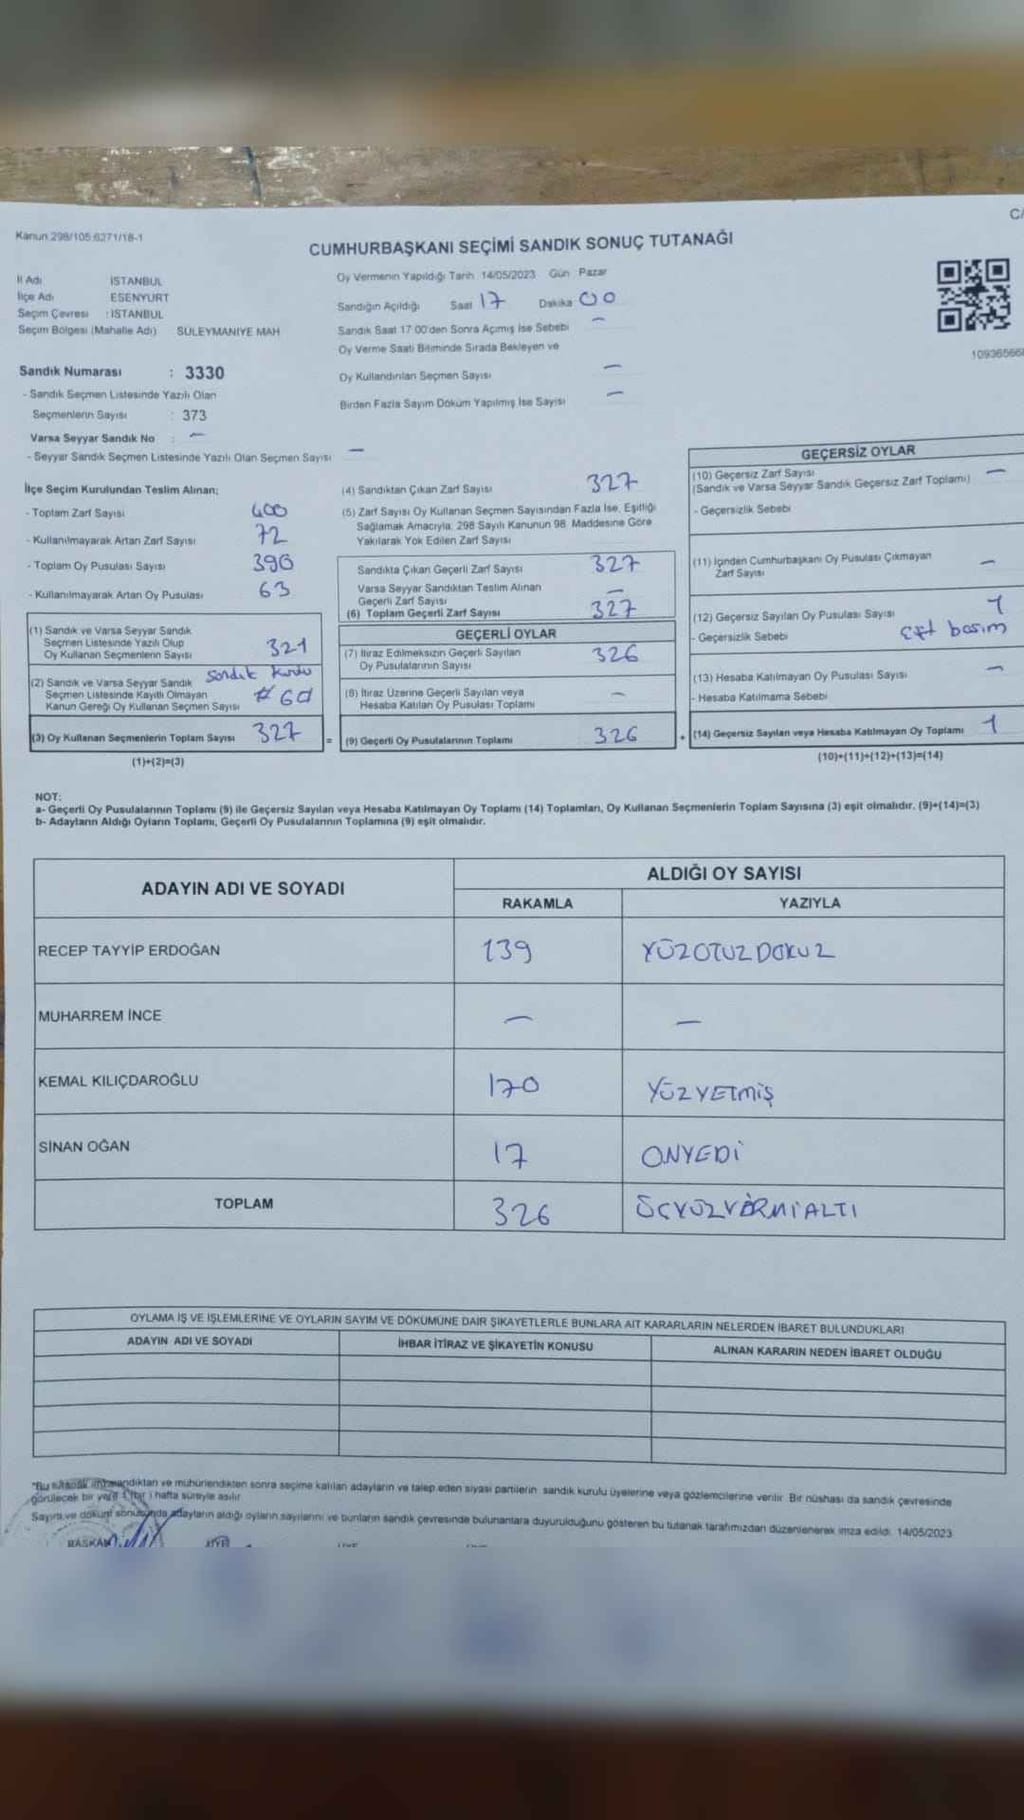 Kanun 298/105 6271/18-1
C/
CUMHURBAŞKANI SEÇİMİ SANDIK SONUÇ TUTANAĞI
İl Adı İSTANBUL
İlçe Adı ESENYURT
Seçim Çevresi : İSTANBUL
Seçim Bölgesi (Mahalle Adı) SÜLEYMANİYE MAH
Oy Vermenin Yapıldığı Tarih 14/05/2023 Gün Pazar
Sandığın Açıldığı Saat 17 Dakika 00
Sandık Saat 17 00'den Sonra Açımış İse Sebebi –
Oy Verme Saati Bitiminde Sırada Bekleyen ve
Oy Kullandırılan Seçmen Sayısı –
Birden Fazla Sayım Döküm Yapılmış İse Sayısı –
10936566
Sandık Numarası : 3330
- Sandık Seçmen Listesinde Yazılı Olan
Seçmenlerin Sayısı : 373
Varsa Seyyar Sandık No : –
- Seyyar Sandık Seçmen Listesinde Yazılı Olan Seçmen Sayısı –
İlçe Seçim Kurulundan Teslim Alınan;
- Toplam Zarf Sayısı 400
- Kullanılmayarak Artan Zarf Sayısı 72
- Toplam Oy Pusulası Sayısı 390
- Kullanılmayarak Artan Oy Pusulası 63
(1) Sandık ve Varsa Seyyar Sandık
Seçmen Listesinde Yazılı Olup
Oy Kullanan Seçmenlerin Sayısı 321
(2) Sandık ve Varsa Seyyar Sandık sandık kurulu
Seçmen Listesinde Kayıtlı Olmayan
Kanun Gereği Oy Kullanan Seçmen Sayısı
(3) Oy Kullanan Seçmenlerin Toplam Sayısı 327
(1)+(2)=(3)
(4) Sandıktan Çıkan Zarf Sayısı 327
(5) Zarf Sayısı Oy Kullanan Seçmen Sayısından Fazla İse, Eşitliği
Sağlamak Amacıyla, 298 Sayılı Kanunun 98. Maddesine Göre
Yakılarak Yok Edilen Zarf Sayısı
Sandıkta Çıkan Geçerli Zarf Sayısı 327
Varsa Seyyar Sandıktan Teslim Alınan
Geçerli Zarf Sayısı –
(6) Toplam Geçerli Zarf Sayısı 327
GEÇERLİ OYLAR
(7) İtiraz Edilmeksizin Geçerli Sayılan
Oy Pusulalarının Sayısı 326
(8) İtiraz Üzerine Geçerli Sayılan veya
Hesaba Katılan Oy Pusulası Toplamı –
= (9) Geçerli Oy Pusulalarının Toplamı 326
GEÇERSİZ OYLAR
(10) Geçersiz Zarf Sayısı –
(Sandık ve Varsa Seyyar Sandık Geçersiz Zarf Toplamı)
- Geçersizlik Sebebi
(11) İçinden Cumhurbaşkanı Oy Pusulası Çıkmayan
Zarf Sayısı –
(12) Geçersiz Sayılan Oy Pusulası Sayısı 1
- Geçersizlik Sebebi çift basım
(13) Hesaba Katılmayan Oy Pusulası Sayısı –
- Hesaba Katılmama Sebebi
+ (14) Geçersiz Sayılan veya Hesaba Katılmayan Oy Toplamı 1
(10)+(11)+(12)+(13)=(14)
NOT:
a- Geçerli Oy Pusulalarının Toplamı (9) ile Geçersiz Sayılan veya Hesaba Katılmayan Oy Toplamı (14) Toplamları, Oy Kullanan Seçmenlerin Toplam Sayısına (3) eşit olmalıdır. (9)+(14)=(3)
b- Adayların Aldığı Oyların Toplamı, Geçerli Oy Pusulalarının Toplamına (9) eşit olmalıdır.
ADAYIN ADI VE SOYADI
ALDIĞI OY SAYISI
RAKAMLA YAZIYLA
RECEP TAYYİP ERDOĞAN 139 YÜZOTUZDOKUZ
MUHARREM İNCE – –
KEMAL KILIÇDAROĞLU 170 YÜZYETMİŞ
SİNAN OĞAN 17 ONYEDİ
TOPLAM 326 ÜÇYÜZYİRMİALTI
OYLAMA İŞ VE İŞLEMLERİNE VE OYLARIN SAYIM VE DÖKÜMÜNE DAİR ŞİKAYETLERLE BUNLARA AİT KARARLARIN NELERDEN İBARET BULUNDUKLARI
ADAYIN ADI VE SOYADI İHBAR İTİRAZ VE ŞİKAYETİN KONUSU ALINAN KARARIN NEDEN İBARET OLDUĞU
"Bu tutanak imzalandıktan ve mühürlendikten sonra seçime katılan adayların ve talep eden siyasi partilerin sandık kurulu üyelerine veya gözlemcilerine verilir. Bir nüshası da sandık çevresinde
görülecek bir yere 1 (bir) hafta süreyle asılır
Sayım ve döküm sonucunda adayların aldığı oyların sayılarını ve bunların sandık çevresinde bulunanlara duyurulduğunu gösteren bu tutanak tarafımızdan düzenlenerek imza edildi. 14/05/2023
BAŞKAN ÜYE